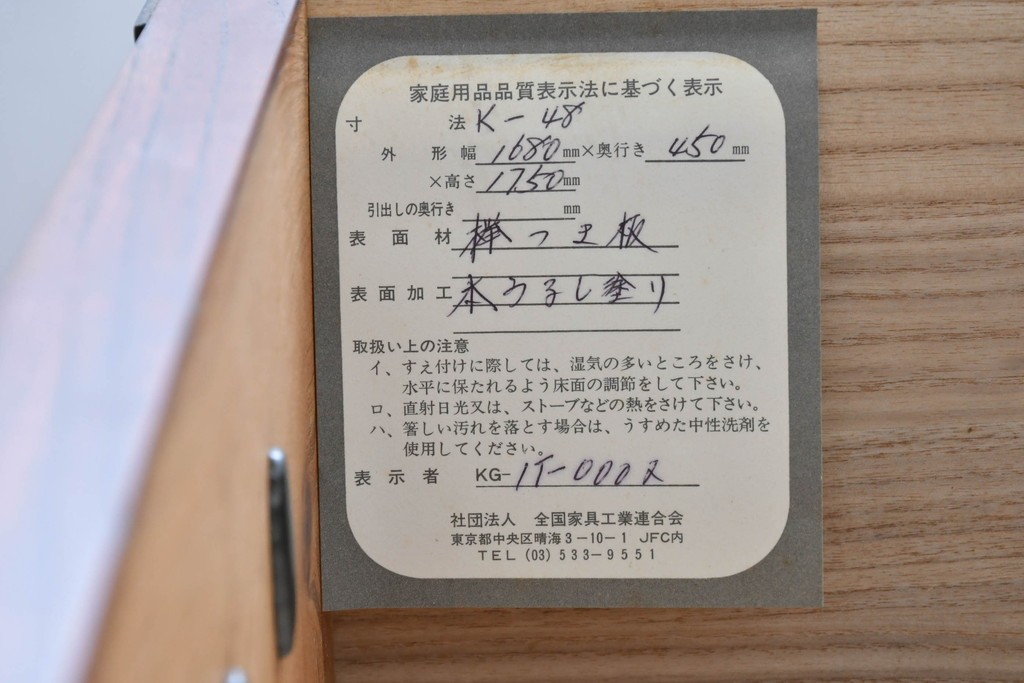 家庭用品品質表示法に基づく表示
寸法 K-48
外形幅 1680mm×奥行き 450mm
×高さ 1750mm
引出しの奥行き mm
表面材 欅つき板
表面加工 木うるし塗り
取扱い上の注意
イ、すえ付けに際しては、湿気の多いところをさけ、
水平に保たれるよう床面の調節をして下さい。
ロ、直射日光又は、ストーブなどの熱をさけて下さい。
ハ、箸しい汚れを落とす場合は、うすめた中性洗剤を
使用してください。
表示者 KG-
社団法人 全国家具工業連合会
東京都中央区晴海3-10-1 JFC内
TEL (03) 533-9551